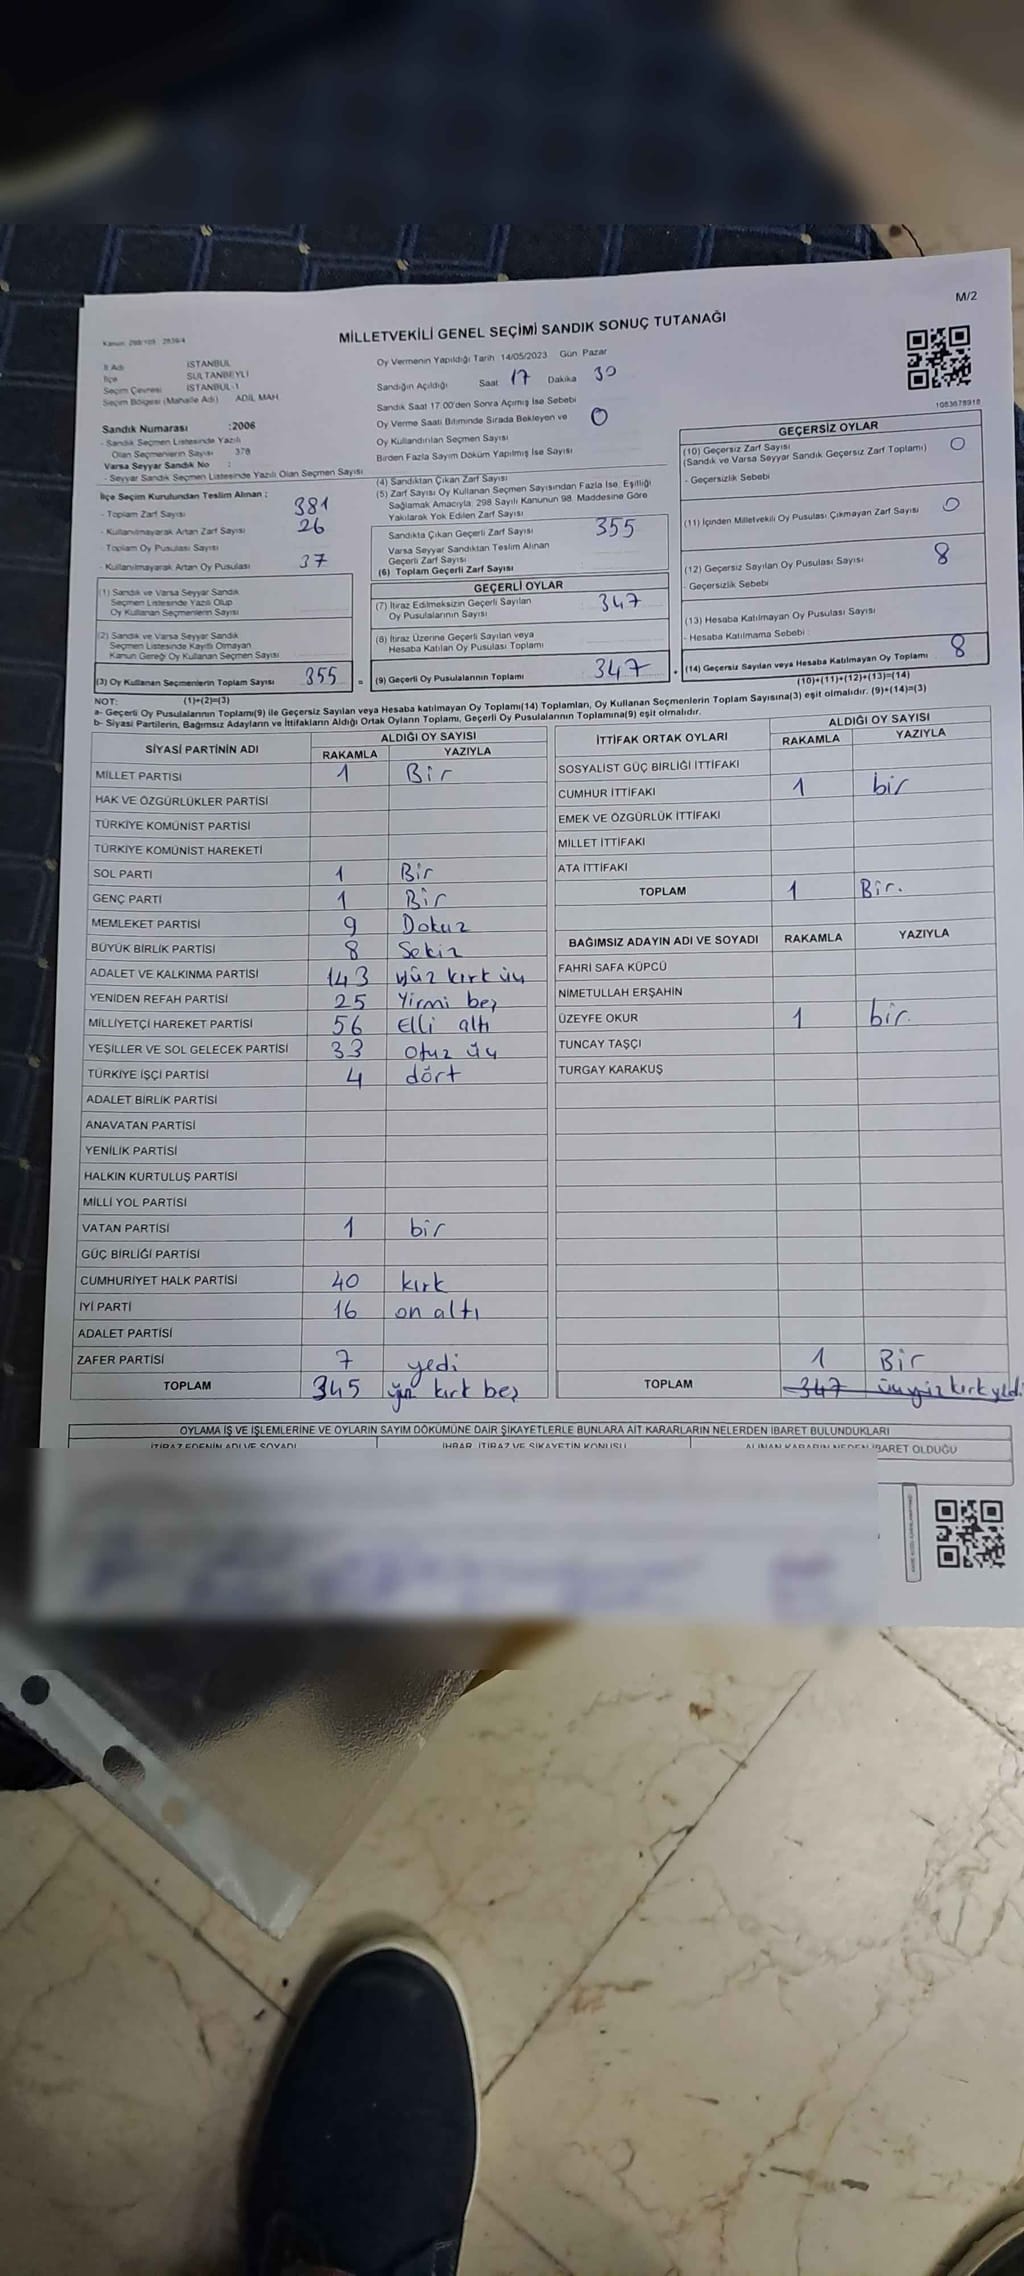 M/2
MİLLETVEKİLİ GENEL SEÇİMİ SANDIK SONUÇ TUTANAĞI
İl Adı İSTANBUL
İlçe SULTANBEYLİ
Seçim Çevresi İSTANBUL-1
Seçim Bölgesi (Mahalle Adı) ADİL MAH.
Sandık Numarası :2006
- Sandık Seçmen Listesinde Yazılı
Olan Seçmenlerin Sayısı 378
Varsa Seyyar Sandık No :
- Seyyar Sandık Seçmen Listesinde Yazılı Olan Seçmen Sayısı
İlçe Seçim Kurulundan Teslim Alınan :
- Toplam Zarf Sayısı 381
- Kullanılmayarak Artan Zarf Sayısı 26
- Toplam Oy Pusulası Sayısı
- Kullanılmayarak Artan Oy Pusulası 37
(1) Sandık ve Varsa Seyyar Sandık
Seçmen Listesinde Yazılı Olup
Oy Kullanan Seçmenlerin Sayısı
(2) Sandık ve Varsa Seyyar Sandık
Seçmen Listesinde Kayıtlı Olmayan
Kanun Gereği Oy Kullanan Seçmen Sayısı
(3) Oy Kullanan Seçmenlerin Toplam Sayısı 355 =
Oy Vermenin Yapıldığı Tarih 14/05/2023 Gün Pazar
Sandığın Açıldığı Saat 17 Dakika 30
Sandık Saat 17.00'den Sonra Açımış İse Sebebi
Oy Verme Saati Bitiminde Sırada Bekleyen ve 0
Oy Kullandırılan Seçmen Sayısı
Birden Fazla Sayım Döküm Yapılmış İse Sayısı
(4) Sandıktan Çıkan Zarf Sayısı
(5) Zarf Sayısı Oy Kullanan Seçmen Sayısından Fazla İse, Eşitliği
Sağlamak Amacıyla, 298 Sayılı Kanunun 98. Maddesine Göre
Yakılarak Yok Edilen Zarf Sayısı
Sandıkta Çıkan Geçerli Zarf Sayısı 355
Varsa Seyyar Sandıktan Teslim Alınan
Geçerli Zarf Sayısı
(6) Toplam Geçerli Zarf Sayısı
GEÇERLİ OYLAR
(7) İtiraz Edilmeksizin Geçerli Sayılan
Oy Pusulalarının Sayısı 347
(8) İtiraz Üzerine Geçerli Sayılan veya
Hesaba Katılan Oy Pusulası Toplamı
(9) Geçerli Oy Pusulalarının Toplamı 347 +
1083678918
GEÇERSİZ OYLAR
(10) Geçersiz Zarf Sayısı 0
(Sandık ve Varsa Seyyar Sandık Geçersiz Zarf Toplamı)
- Geçersizlik Sebebi
(11) İçinden Milletvekili Oy Pusulası Çıkmayan Zarf Sayısı 0
(12) Geçersiz Sayılan Oy Pusulası Sayısı 8
- Geçersizlik Sebebi
(13) Hesaba Katılmayan Oy Pusulası Sayısı
- Hesaba Katılmama Sebebi
(14) Geçersiz Sayılan veya Hesaba Katılmayan Oy Toplamı 8
(10)+(11)+(12)+(13)=(14)
NOT: (1)+(2)=(3)
a- Geçerli Oy Pusulalarının Toplamı(9) ile Geçersiz Sayılan veya Hesaba katılmayan Oy Toplamı(14) Toplamları, Oy Kullanan Seçmenlerin Toplam Sayısına(3) eşit olmalıdır. (9)+(14)=(3)
b- Siyasi Partilerin, Bağımsız Adayların ve İttifakların Aldığı Ortak Oyların Toplamı, Geçerli Oy Pusulalarının Toplamına(9) eşit olmalıdır.
SİYASİ PARTİNİN ADI ALDIĞI OY SAYISI
RAKAMLA YAZIYLA
MİLLET PARTİSİ 1 Bir
HAK VE ÖZGÜRLÜKLER PARTİSİ
TÜRKİYE KOMÜNİST PARTİSİ
TÜRKİYE KOMÜNİST HAREKETİ
SOL PARTİ 1 Bir
GENÇ PARTİ 1 Bir
MEMLEKET PARTİSİ 9 Dokuz
BÜYÜK BİRLİK PARTİSİ 8 Sekiz
ADALET VE KALKINMA PARTİSİ 143 yüz kırk üç
YENİDEN REFAH PARTİSİ 25 Yirmi beş
MİLLİYETÇİ HAREKET PARTİSİ 56 Elli altı
YEŞİLLER VE SOL GELECEK PARTİSİ 33 otuz üç
TÜRKİYE İŞÇİ PARTİSİ 4 dört
ADALET BİRLİK PARTİSİ
ANAVATAN PARTİSİ
YENİLİK PARTİSİ
HALKIN KURTULUŞ PARTİSİ
MİLLİ YOL PARTİSİ
VATAN PARTİSİ 1 bir
GÜÇ BİRLİĞİ PARTİSİ
CUMHURİYET HALK PARTİSİ 40 kırk
İYİ PARTİ 16 on altı
ADALET PARTİSİ
ZAFER PARTİSİ 7 yedi
TOPLAM 345 kırk beş
İTTİFAK ORTAK OYLARI ALDIĞI OY SAYISI
RAKAMLA YAZIYLA
SOSYALİST GÜÇ BİRLİĞİ İTTİFAKI
CUMHUR İTTİFAKI 1 bir
EMEK VE ÖZGÜRLÜK İTTİFAKI
MİLLET İTTİFAKI
ATA İTTİFAKI
TOPLAM 1 Bir.
BAĞIMSIZ ADAYIN ADI VE SOYADI RAKAMLA YAZIYLA
FAHRİ SAFA KÜPCÜ
NİMETULLAH ERŞAHİN
ÜZEYFE OKUR 1 bir.
TUNCAY TAŞÇI
TURGAY KARAKUŞ
1 Bir
TOPLAM 347
OYLAMA İŞ VE İŞLEMLERİNE VE OYLARIN SAYIM DÖKÜMÜNE DAİR ŞİKAYETLERLE BUNLARA AİT KARARLARIN NELERDEN İBARET BULUNDUKLARI
İTİRAZ EDENİN ADI VE SOYADI İHBAR, İTİRAZ VE ŞİKAYETİN KONUSU ALINAN KARARIN NEDEN İBARET OLDUĞU